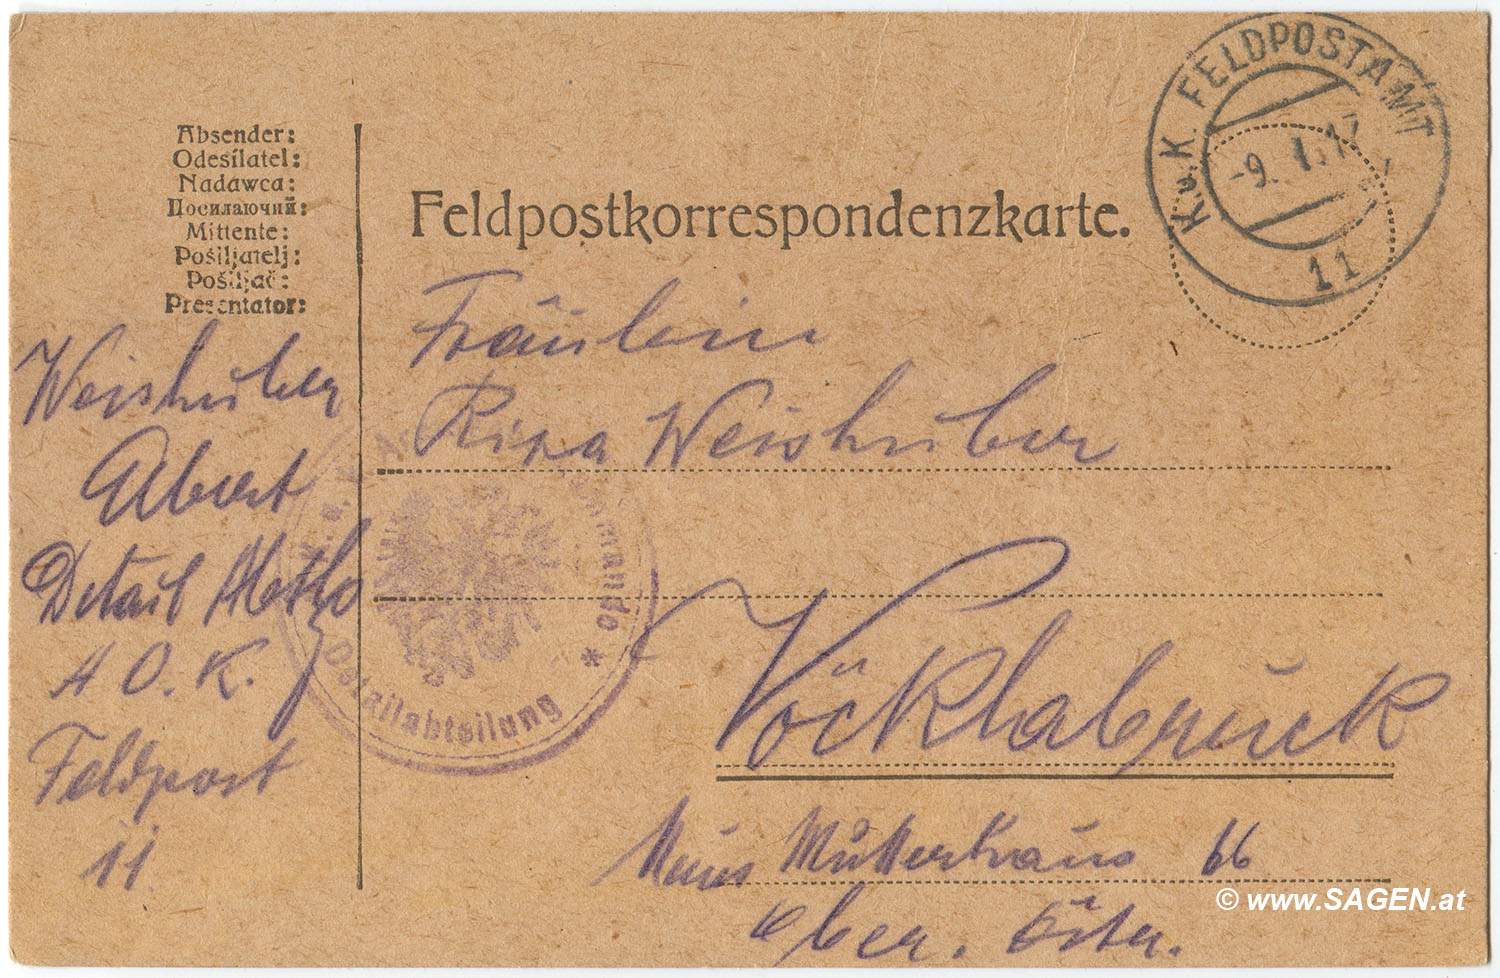 K.u.K. FELDPOSTAMT
-9. 1. 17
11
Absender:
Odesílatel:
Nadawca:
Посилаючий:
Mittente:
Pošiljatelj:
Pošiljač:
Presentator:
Feldpostkorrespondenzkarte.
Weishuber
Albert
Detail
A O. K.
Feldpost
11.
Fräulein
Weishuber
Vöcklabruck
Mutterhaus 66
Ober. Östr.
K. u. K.
kommando
Detailabteilung *
© www.SAGEN.at